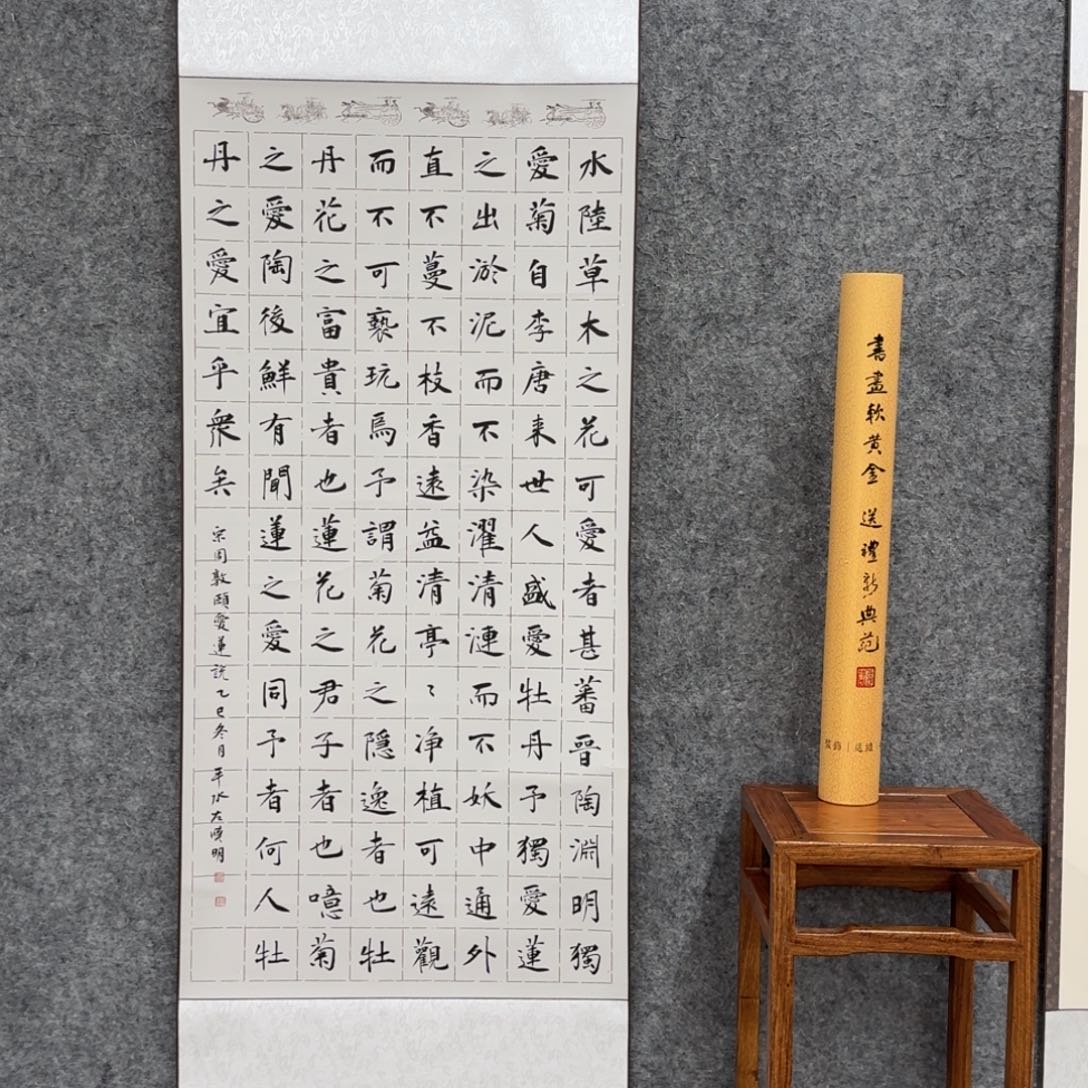 水陸草木之花可愛者甚蕃晉陶淵明獨
愛菊自李唐来世人盛愛牡丹予獨愛蓮
之出淤泥而不染濯清漣而不妖中通外
直不蔓不枝香遠益清亭〻净植可遠觀
而不可褻玩焉予謂菊花之隱逸者也牡
丹花之富貴者也蓮花之君子者也噫菊
之愛陶後鮮有聞蓮之愛同予者何人牡
丹之愛宜乎衆矣
宋周敦頤愛蓮説乙巳冬月
書畫軟黄金 送禮新典苑